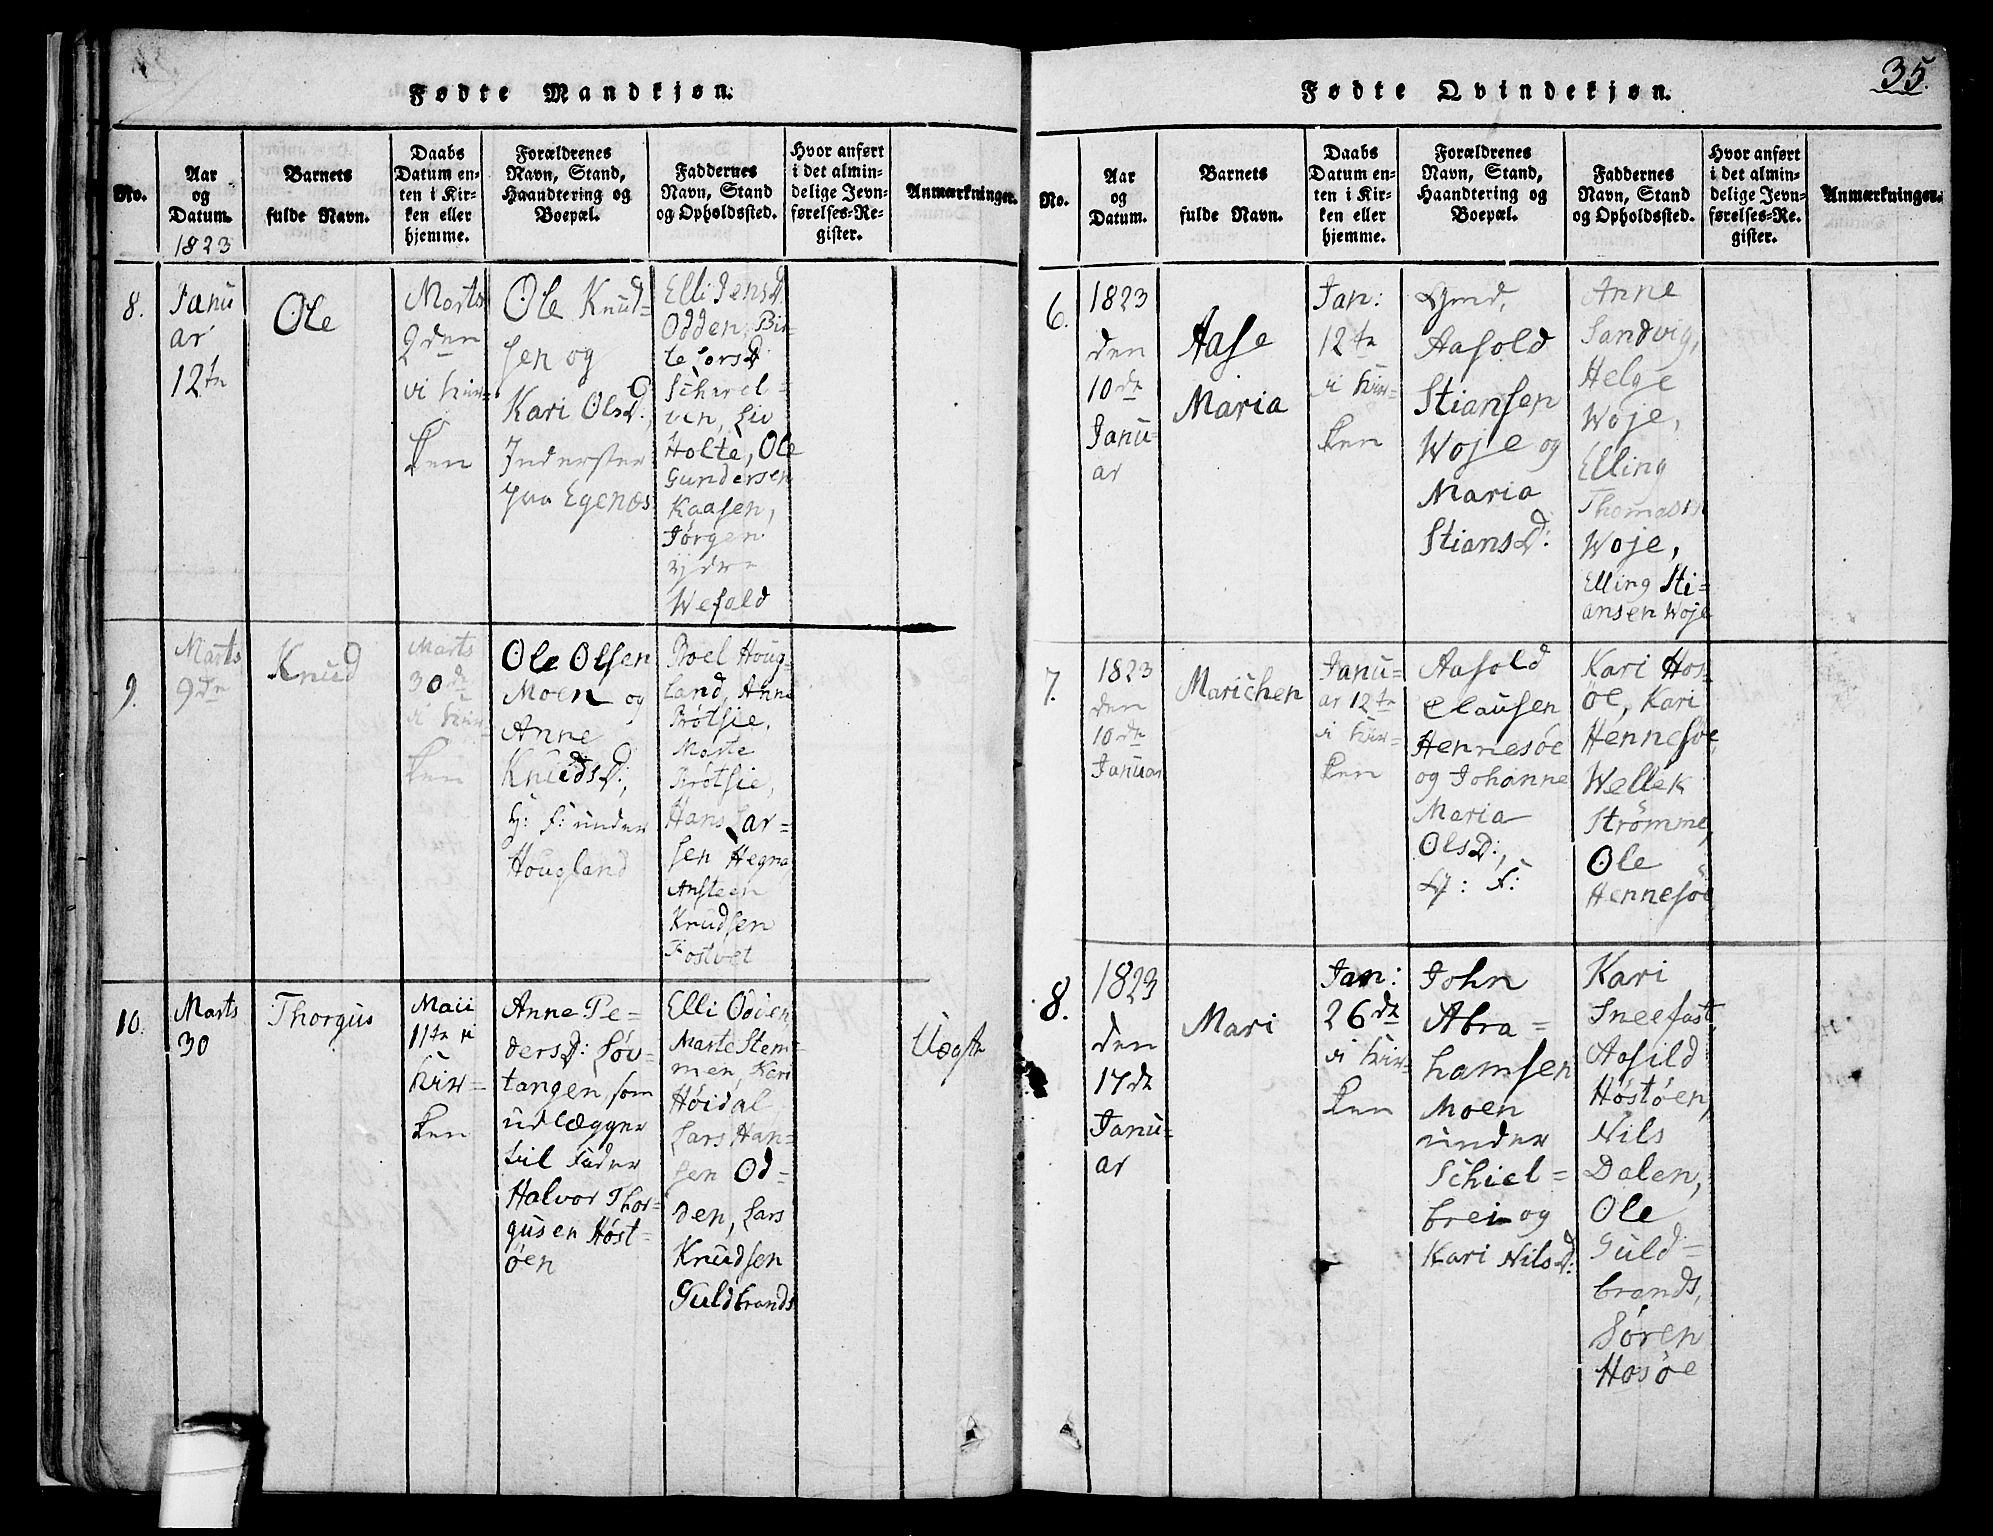 35.
Fødte Mandkjøn.
No.
Aar
og
Datum.
1823
Barnets
fulde Navn.
Daabs
Datum en-
ten i Kir-
ken eller
hjemme.
Forældrenes
Navn, Stand,
Haandtering og
Boepæl.
Faddernes
Navn, Stand
og Opholdssted.
Hvor anført
i det almin-
delige Jevn-
førelses-Re-
gister.
Anmærkninger.
8.
Janu
ar
12te
Ole
Marts
2den
i Kir-
ken
Ole Knud-
sen og
Kari OlsD.,
Inderster
paa Egenæs
Elli JensD.
Odden, Bir-
te LarsD
Schieel-
ven, Liv
Holte, Ole
Gundersen
Kaasen,
Jørgen
ijdre
Wefald
9.
Marts
9de
Knud
Marts
30de
i Kir-
ken
Ole Olsen
Moen og
Anne
KnudsD.,
H: F: under
Hougland
Boel Houg-
land, Anne
Brötsie,
Marte
Brötsie,
Hans Lar-
sen Hegna
Ansteen
Knudsen
Tostvet
10.
Marts
30
Thorgus
Maii
11te i
Kir-
ken
Anne Pe-
dersD: Løv-
tangen som
udlægger
til Fader
Halvor Thor-
gusen Høst-
øen
Elli Odden
Marte Stem-
men, Kari
Høidal
Lars Han-
sen Od-
den, Lars
Knudsen
Guldbrands
Uægte
Fødte Qvindekjøn.
No.
Aar
og
Datum.
Barnets
fulde Navn.
Daabs
Datum en-
ten i Kir-
ken eller
hjemme.
Forældrenes
Navn, Stand,
Haandtering og
Boepæl.
Faddernes
Navn, Stand
og Opholdssted.
Hvor anført
i det almin-
delige Jevn-
førelses-Re-
gister.
Anmærkninger.
6.
1823
den
10de
Janu-
ar
Aase
Maria
Jan:
12te
i Kir-
ken
Aasold
Stiansen
Woje og
Maria
StiansD:
Anne
Sandvig,
Helge
Woje,
Elling
Thomasen
Woje,
Elling Sti-
ansen Woje
7.
1823
den
10de
Januar
Marichen
Janu-
ar 12te
i Kir-
ken
Aasold
Clausen
Hennesöe
og Johanne
Maria
OlsD:,
H: F:
Kari Hos-
öe, Kari
Hennesöe
Wellek
Strömme,
Ole
Hennesöe
8.
1823
den
17de
Janu-
ar
Mari
Jan:
26de
i Kir-
ken
John
Abra-
hamsen
Moen
under
Schiel-
brei og
Kari NilsD:
Kari
Sneefast
Aasild
Høstøen,
Nils
Dalen,
Ole
Guld-
brands,
Sören
Hosøe